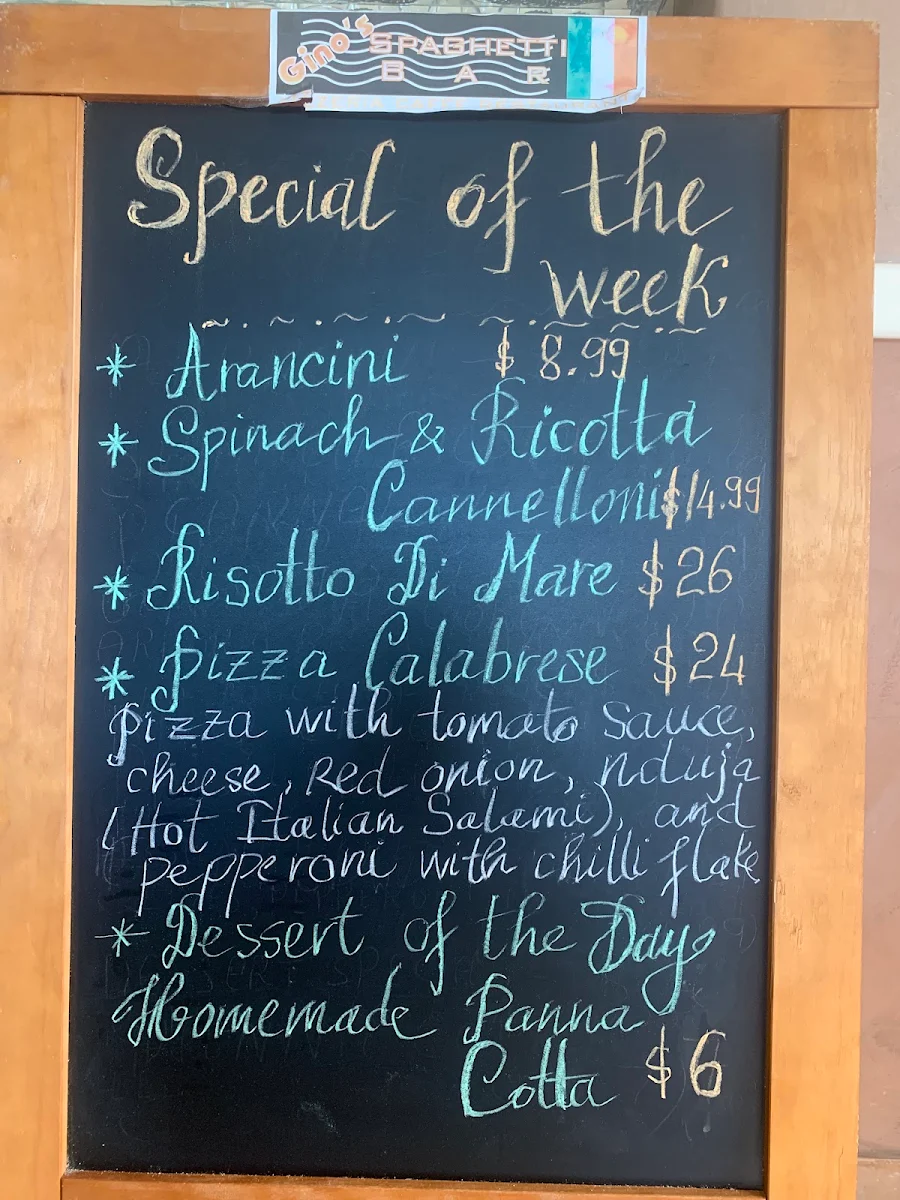 Gino's SPAGHETTI
BAR
Special of the
week
* Arancini $ 8.99
* Spinach & Ricotta
Cannelloni $14.99
* Risotto Di Mare $26
* Pizza Calabrese $24
Pizza with tomato sauce,
cheese, Red onion, nduja
(Hot Italian Salami), and
pepperoni with chilli flake
* Dessert of the Day
Homemade Panna
Cotta $6